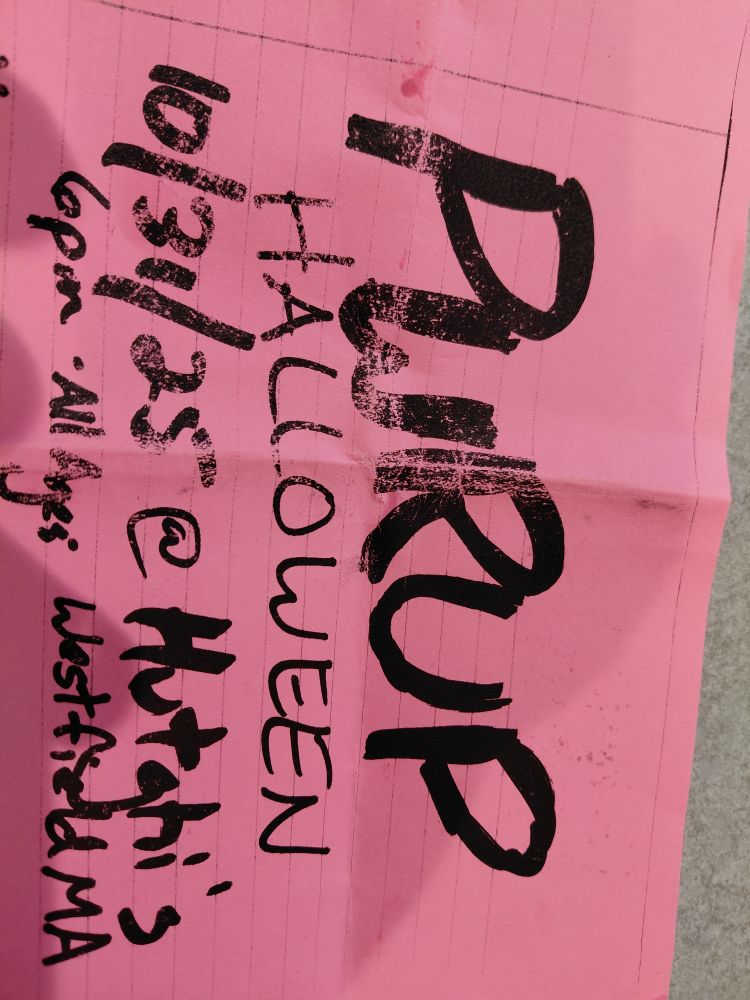 PWRUP
HALLOWEEN
10/31/25 @ Hutghi's
6pm · All Ages Westfield MA